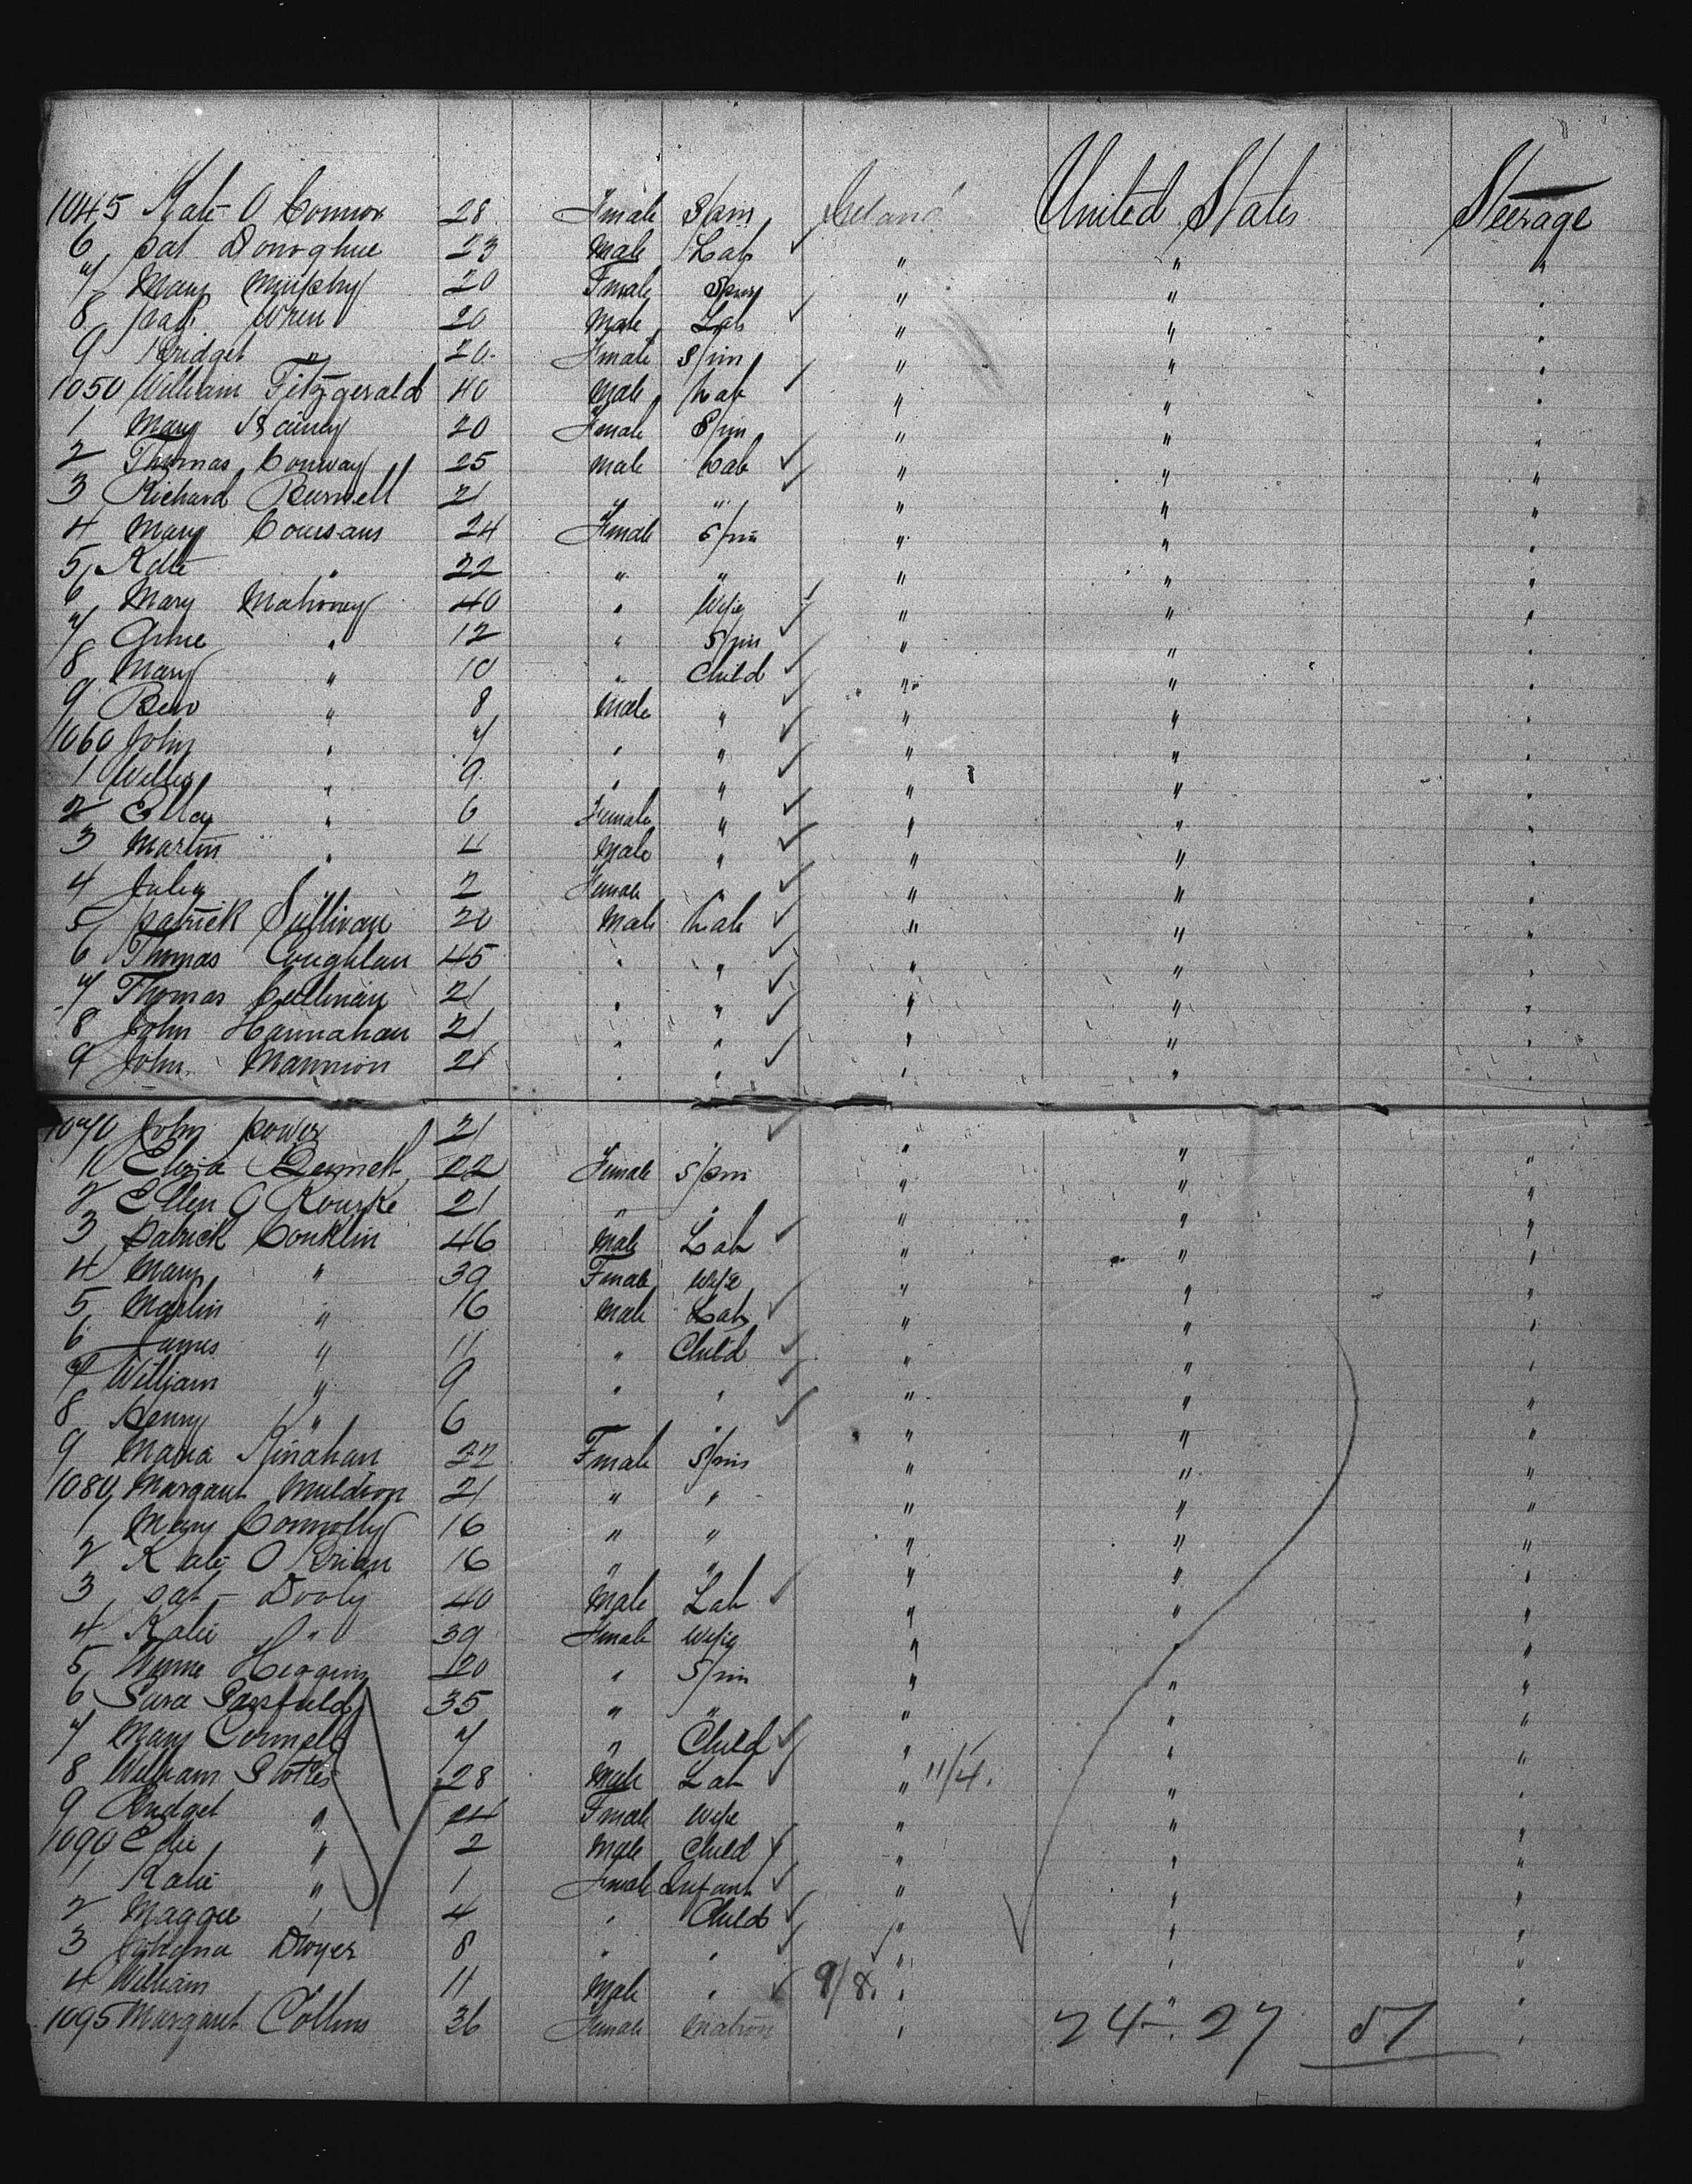 1045 Kate O Connor 28 Female Spin Ireland United States Steerage
6 Pat Donoghue 23 Male Lab " " "
7 Mary Murphy 20 Female Spin " " "
8 Pat Wren 20 Male Lab " " "
9 Bridget " 20 Female Spin " " "
1050 William Fitzgerald 40 Male Lab " " "
1 Mary 20 Female Spin " " "
2 Thomas Conway 25 Male Lab " " "
3 Richard 21 " " " "
4 Mary 24 Female Spin " " "
5 Kate " 22 " " " " "
6 Mary Mahoney 40 " Wife " " "
7 " 12 " Spin " " "
8 Mary " 10 " Child " " "
9 " 8 Male " " " "
1060 John " 7 " " " " "
1 " 9 " " " " "
2 " 6 Female " " " "
3 Martin " 4 Male " " " "
4 Julia " 2 Female " " " "
5 Patrick Sullivan 20 Male Lab " " "
6 Thomas Coughlan 45 " " " " "
7 Thomas Cullinan 21 " " " " "
8 John Hannahan 21 " " " " "
9 John Mannion 21 " " " " "
1070 John Power 21 " " " " "
1 Eliza Bennett 22 Female Spin " " "
2 Ellen O Rourke 21 " " " " "
3 Patrick Conklin 46 Male Lab " " "
4 Mary " 39 Female Wife " " "
5 Martin " 16 Male Lab " " "
6 James " 11 " Child " " "
7 William " 9 " " " " "
8 Henry " 6 " " " " "
9 Maria Kinahan 22 Female Spin " " "
1080 Margaret Muldoon 21 " " " " "
1 Mary Connolly 16 " " " " "
2 Kate O Brian 16 " " " " "
3 Pat Dooly 40 Male Lab " " "
4 Katie " 39 Female Wife " " "
5 Higgins 20 " Spin " " "
6 Sara 35 " " " " "
7 Mary 7 " Child " " "
8 William Stokes 28 Male Lab " 11/4. " "
9 Bridget " 24 Female Wife " " "
1090 " 2 Male Child " " "
1 Katie " 1 Female Infant " " "
2 Maggie " 4 " Child " " "
3 Johanna Dwyer 8 " " " " "
4 William 11 Male " 9/8. " " "
1095 Margaret Collins 36 Female Matron " 24. 27 51 "